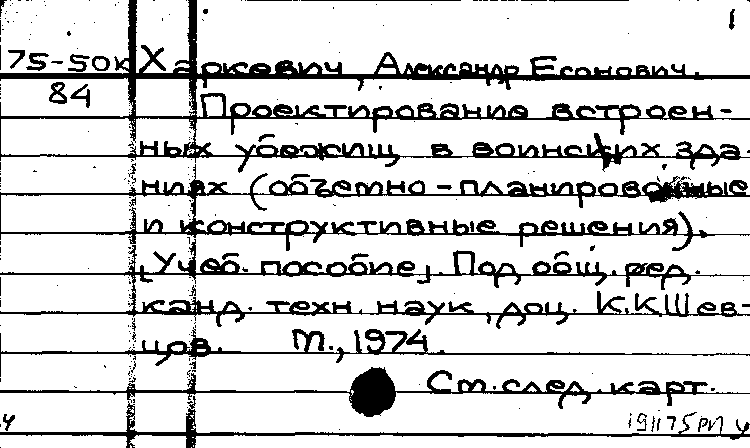 1
75-50к Харкевич, Александр Есонович.
84
Проектирование встроен-
ных убежищ в воинских зда-
ниях (объемно-планировочные
и конструктивные решения).
[Учеб. пособие]. Под общ. ред.
канд. техн. наук, доц. К.К.Шев-
цов. М., 1974.
См. след. карт.